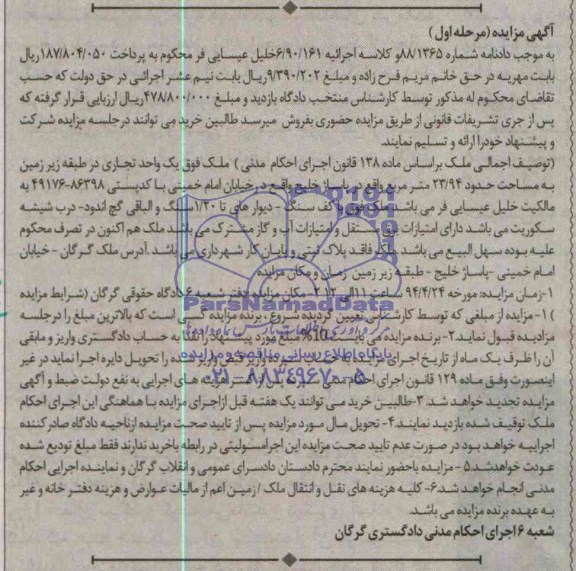 آگهی مزایده (مرحله اول)
به موجب دادنامه شماره ۸۸/۱۳۶۵و کلاسه اجرائیه ۶/۹۰/۱۶۱خلیل عیسایی فر محکوم به پرداخت ۱۸۷/۸۰۴/۰۵۰ریال
بابت مهریه در حق خانم مریم فرح زاده و مبلغ ۹/۳۹۰/۲۰۲ریال بابت نیم عشر اجرائی در حق دولت که حسب
تقاضای محکوم له مذکور توسط کارشناس منتخب دادگاه بازدید و مبلغ ۴۷۸/۸۰۰/۰۰۰ریال ارزیابی قرار گرفته که
پس از جری تشریفات قانونی از طریق مزایده حضوری بفروش میرسد طالبین خرید می توانند درجلسه مزایده شرکت
و پیشنهاد خودرا ارائه و تسلیم نمایند.
(توصیف اجمالی ملک براساس ماده ۱۳۸ قانون اجرای احکام مدنی) ملک فوق یک واحد تجاری در طبقه زیر زمین
به مساحت حدود ۲۳/۹۴ متر مربع واقع در پاساژ خلیج واقع در خیابان امام خمینی با کدپستی ۸۶۳۹۸-۴۹۱۷۶ به
مالکیت خلیل عیسایی فر می باشد ملک فوق با کف سنگ - دیوار های تا ۱/۲۰ سنگ و الباقی گچ اندود- درب شیشه
سکوریت می باشد دارای امتیازات برق مستقل و امتیازات آب و گاز مشترک می باشد ملک هم اکنون در تصرف محکوم
علیه بوده سهل البیع می باشد ملک فاقد پلاک ثبتی و پایان کار شهرداری می باشد .آدرس ملک گرگان - خیابان
امام خمینی -پاساژ خلیج - طبقه زیر زمین زمان و مکان مزایده
۱-زمان مزایده: مورخه ۹۴/۴/۲۴ ساعت ۱۱الی ۱۲ ۲- مکان مزایده دفتر شعبه ۶ دادگاه حقوقی گرگان (شرایط مزایده
) ۱- مزایده از مبلغی که توسط کارشناس تعیین گردیده شروع ، برنده مزایده کسی است که بالاترین مبلغ را درجلسه
مزایدبه قبول نماید.۲- برنده مزایده می بایست 10% مبلغ مورد پیشنهاد را نقدا به حساب دادگستری واریز و مابقی
آن را ظرف یک ماه از تاریخ اجرای مزایده به حساب سپرده واریز و فیش واریز شده را تحویل دایره اجرا نماید در غیر
اینصورت وفق ماده ۱۲۹ قانون اجرای احکام مدنی سپرده پس از کسر هزینه های اجرایی به نفع دولت ضبط و آگهی
مزایده تجدید خواهد شد. ۳-طالبین خرید می توانند یک هفته قبل ازاجرای مزایده با هماهنگی این اجرای احکام
ملک توقیف شده بازدید نمایند.۴- تحویل مال مورد مزایده پس از تایید صحت مزایده ازناحیه دادگاه صادر کننده
اجراییه خواهد بود در صورت عدم تایید صحت مزایده این اجرامسئولیتی در رابطه باخرید ندارند فقط مبلغ تودیع شده
عودت خواهدشد.۵- مزایده باحضور نمایند محترم دادستان دادسرای عمومی و انقلاب گرگان و نماینده اجرایی احکام
مدنی انجام خواهد شد.۶- کلیه هزینه های نقل و انتقال ملک /زمین اعم از مالیات عوارض و هزینه دفتر خانه و غیر
به عهده برنده مزایده می باشد.
شعبه ۶ اجرای احکام مدنی دادگستری گرگان
ParsNamadData
پایگاه اطلاع رسانی مناقصه و مزایده
۰۲۱-۸۸۳۴۹۶۷۰-۵